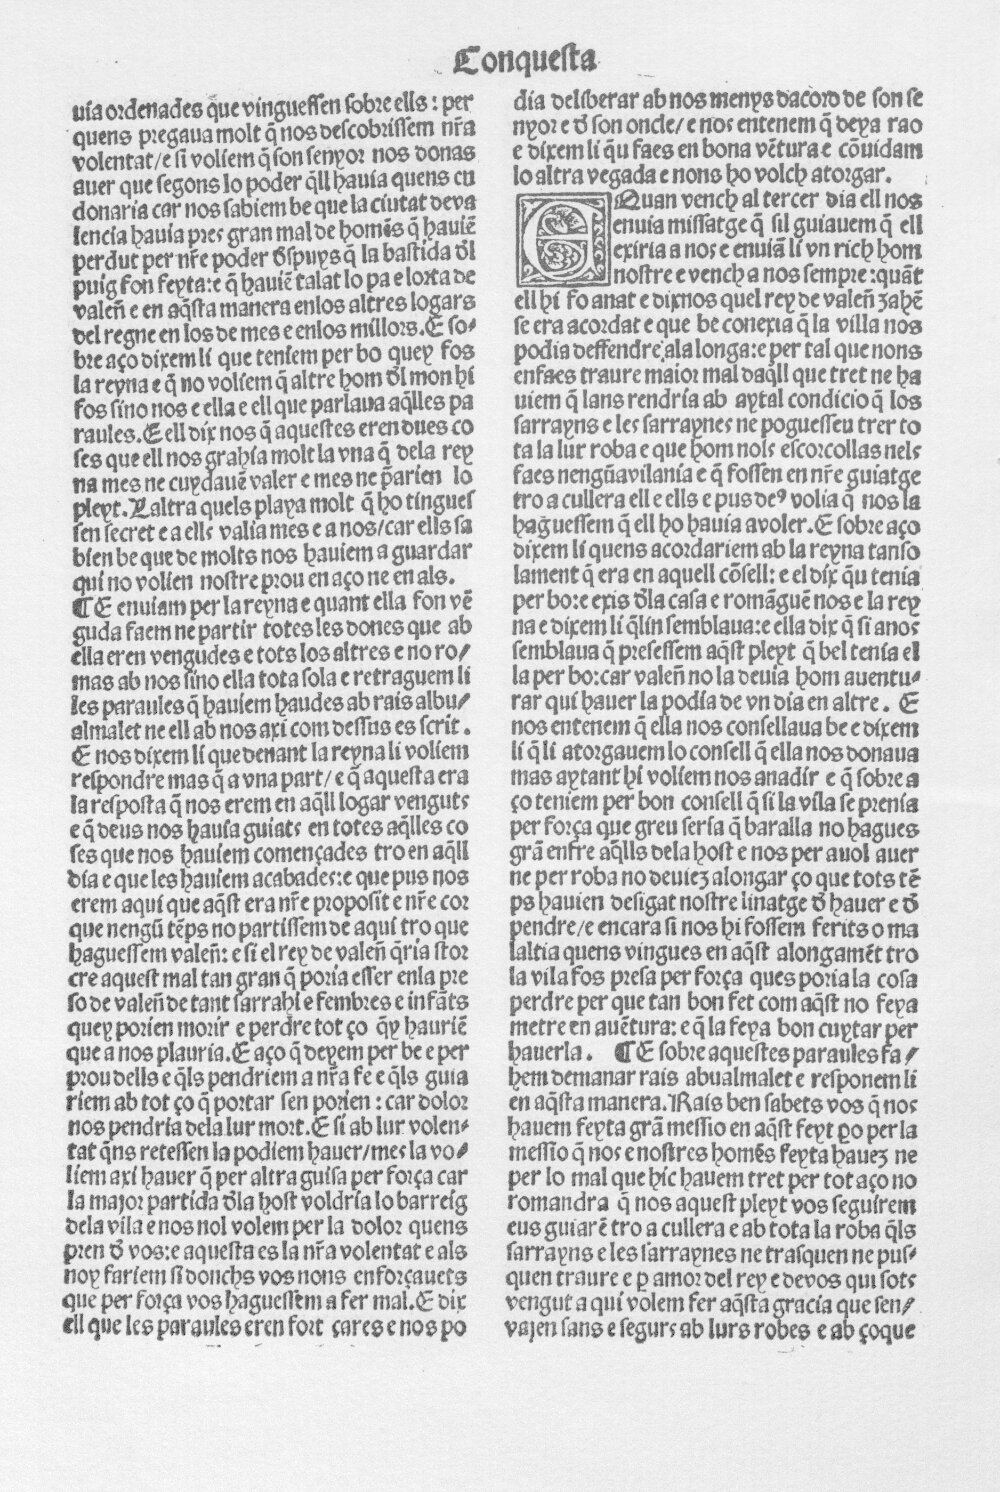 Conquesta
uia ordenades q̃ue vinguessen sobre ells : per
quens pregaua molt q̃ nos descobrissem nr̃a
volentat/e si voliem q̃ son senyor nos donas
auer que segons lo poder q̃ll hauia quens en
donaria car nos sabiem be que la ciutat deva
lencia hauia pres gran mal de homẽs q̃ hauiẽ
perdut per nr̃e poder d̃spuys q̃ la bastida d̃l
puig fon feyta: e q̃ hauiẽ talat lo pa e loxta de
valeñ e en aq̃sta manera enlos altres logars
del regne en los de mes e enlos millors. E so-
bre aço dixem li que teniem per bo quey fos
la reyna e q̃ no voliem q̃ altre hom d̃l mon hi
fos sino nos e ella e ell que parlaua aq̃lles pa
raules. E ell dix nos q̃ aquestes eren dues co
ses que ell nos grahia molt la vna q̃ dela rey
na mes ne cuydauẽ valer e mes ne p̃arien lo
pleyt. Laltra quels playa molt q̃ ho tingues
sen secret e a ells valia mes e a nos/car ells sa
bien be que de molts nos hauiem a guardar
qui no volien nostre prou en aço ne en als.
¶ E enuiam per la reyna e quant ella fon vẽ
guda faem ne partir totes les dones que ab
ella eren vengudes e tots los altres e no ro/
mas ab nos sino ella tota sola e retraguem li
les paraules q̃ hauiem haudes ab rais albu/
almalet ne ell ab nos axi com dessus es scrit.
E nos dixem li que denant la reyna li voliem
respondre mas q̃ a vna part/ e q̃ aquesta era
la resposta q̃ nos erem en aq̃ll logar venguts
e q̃ deus nos hauia guiats en totes aq̃lles co
ses que nos hauiem començades tro en aq̃ll
dia e que les hauiem acabades: e que pus nos
erem aqui que aq̃st era nr̃e proposit e nr̃e cor
que nengũ tẽps no partissem de aqui tro que
haguessem valeñ: e si el rey de valeñ q̃ria stor
cre aquest mal tan gran q̃ poria esser enla pre
so de valeñ de tant sarrahi e fembres e infãts
quey porien morir e perdre tot ço q̃y hauriẽ
que a nos plauria. E aço q̃ deyem per be e per
prou dells e q̃ls pendriem a nr̃a fe e q̃ls guia
riem ab tot ço q̃ portar sen porien : car dolor
nos pendria dela lur mort. E si ab lur volen-
tat q̃ns retessen la podiem hauer/mes la vo-
liem axi hauer q̃ per altra guisa per força car
la major partida d̃la host voldria lo barreig
dela vila e nos nol volem per la dolor quens
pren d̃ vos: e aquesta es la nr̃a volentat e als
noy fariem si donchs vos nons enforçauets
que per força vos haguessem a fer mal. E dix
ell que les paraules eren fort cares e nos po
dia delsberar ab nos menys dacord de son se
nyor e d̃ son oncle/ e nos entenem q̃ deya rao
e dixem li q̃u faes en bona vẽtura e cõuidam
lo altra vegada e nons ho volch atorgar.
E Quan vench al tercer dia ell nos
enuia missatge q̃ sil guiauem q̃ ell
exiria a nos e enuiã li vn rich hom
nostre e vench a nos sempre: quãt
ell hi fo anat e dixnos quel rey de valeñ zahẽ
se era acordat e que be conexia q̃ la villa nos
podia deffendre ala longa: e per tal que nons
enfaes traure maior mal daq̃ll que tret ne ha
uiem q̃ lans rendria ab aytal condicio q̃ los
sarrayns e les sarraynes ne poguessen trer to
ta la lur roba e que hom nols escorcollas nels
faes nengũa vilania e q̃ fossen en nr̃e guiatge
tro a cullera ell e ells e pus deꝰ volia q̃ nos la
hag̃uessem q̃ ell ho hauia avoler. E sobre aço
dixem li quens acordariem ab la reyna tanso
lament q̃ era en aquell cõsell: e el dix q̃u tenia
per bo: e exis d̃la casa e romãguẽ nos e la rey
na e dixem li q̃ lin semblaua: e ella dix q̃ si a nos
semblaua q̃ presessem aq̃st pleyt q̃ bel tenia el
la per bo: car valeñ no la deuia hom auentu-
rar qui hauer la podia de vn dia en altre. E
nos entenem q̃ ella nos consellaua be e dixem
li q̃ li atorgauem lo consell q̃ ella nos donaua
mas aytant hi voliem nos anadir e q̃ sobre a
ço teniem per bon consell q̃ si la vila se prenia
per força que greu seria q̃ baralla no hagues
grã enfre aq̃lls dela host e nos per auol auer
ne per roba no deuiez alongar ço que tots tẽ
ps hauien desigat nostre linatge d̃ hauer e d̃
pendre/e encara si nos hi fossem ferits o ma
laltia quens vingues en aq̃st alongamẽt tro
la vila fos presa per força ques poria la cosa
perdre per que tan bon fet com aq̃st no feya
metre en auẽtura: e q̃ la feya bon cuytar per
hauerla. ¶ E sobre aquestes paraules fa/
hem demanar rais abualmalet e responem li
en aq̃sta manera. Rais ben sabets vos q̃ nos
hauem feyta grã messio en aq̃st feyt ꝑo per la
messio q̃ nos e nostres homẽs feyta hauez ne
per lo mal que hic hauem tret per tot aço no
romandra q̃ nos aquest pleyt vos seguirem
eus guiarẽ tro a cullera e ab tota la roba q̃ls
sarrayns e les sarraynes ne trasquen ne pus-
quen traure e ꝑ amor del rey e de vos qui sots
vengut a qui volem fer aq̃sta gracia que sen/
vajen sans e segurs ab lurs robes e ab ço que